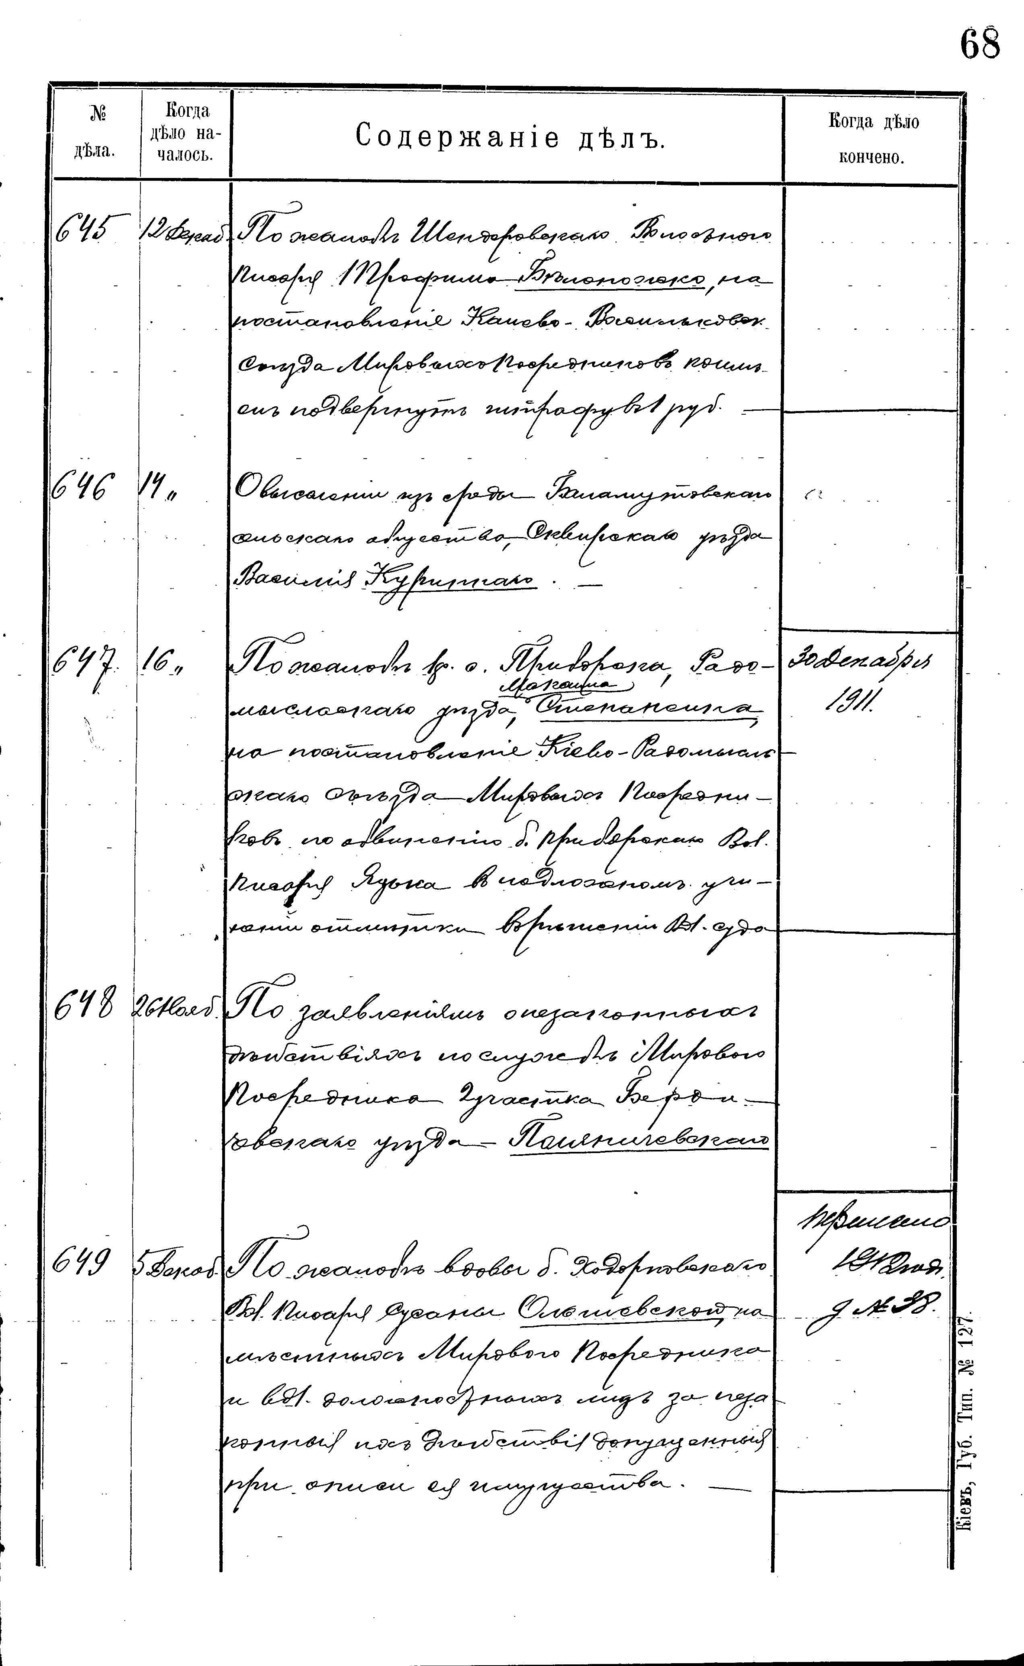 68
№ дѣла.
Когда дѣло на-чалось.
Содержаніе дѣлъ.
Когда дѣло кончено.
645 12 Декаб. По жалобѣ Шендеровскаго Волостного
Писаря Трофима Бѣлоножко, на
постановленіе Канево-Васильковск.
Съѣзда Мировыхъ Посредниковъ коимъ
онъ подвергнутъ штрафу въ 1 руб. —
646 14 „ О выселеніи изъ среды Баламутовскаго
сельскаго общества, Сквирскаго уѣзда
Василія Курипнаго. —
647. 16 „ По жалобѣ кр. с. Приборска, Радо-
Максима
мысльскаго уѣзда, Степаненка,
на постановленіе Кіево-Радомысль
скаго Съѣзда Мировыхъ Посредни-
ковъ по обвиненію б. Приборскаго Вол.
Писаря Яцыка въ подложномъ учи-
неніи отмѣтки въ рѣшеніи Вол. суда
30 Декабря
1911.
648 26 Нояб. По заявленіямъ о незаконныхъ
дѣйствіяхъ по службѣ Мирового
Посредника 2 участка Берди-
чевскаго уѣзда — Паляничевскаго
649 5 Декаб. По жалобѣ вдовы б. Ходорковскаго
Вол. Писаря Сусаны Ольшевской, на
мѣстныхъ Мирового Посредника
и вол. должностныхъ лицъ за неза
конныя ихъ дѣйствія допущенныя
при описи ея имущества. —
Переписано
1912 год.
д № 38.
Кіевъ, Губ. Тип. № 127.